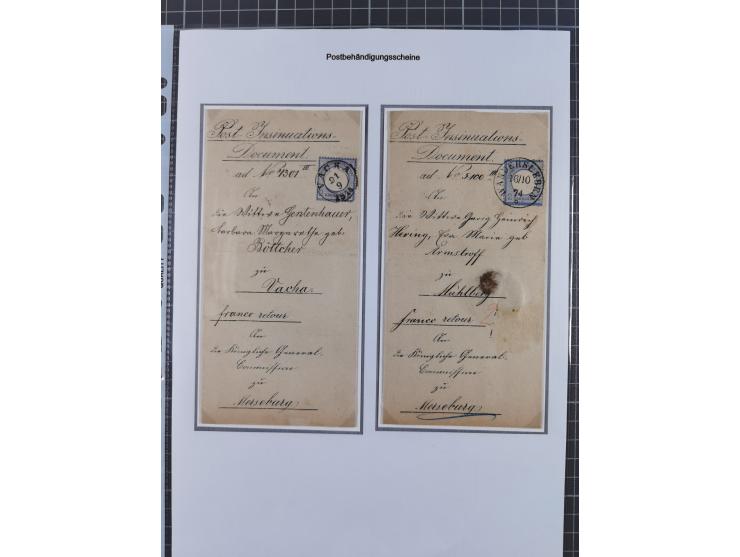 Postbehändigungsscheine
Post-Insinuations-
Document
ad No 4301 III
VACHA
21
9
An
die Wittwe Gerstenhauer,
Barbara Margarethe geb
Böttcher
zu
Vacha
franco retour
An
die Königliche General-
Commission
zu
Merseburg
Post-Insinuations-
Document
ad No 5100 III
WANDERSLEBEN
16/10
74
An
die Wittwe Georg Heinrich
Hering, Eva Maria geb
Armstroff
zu
Mühlberg
franco retour
2
An
die Königliche General-
Commission
zu
Merseburg
QUALITY